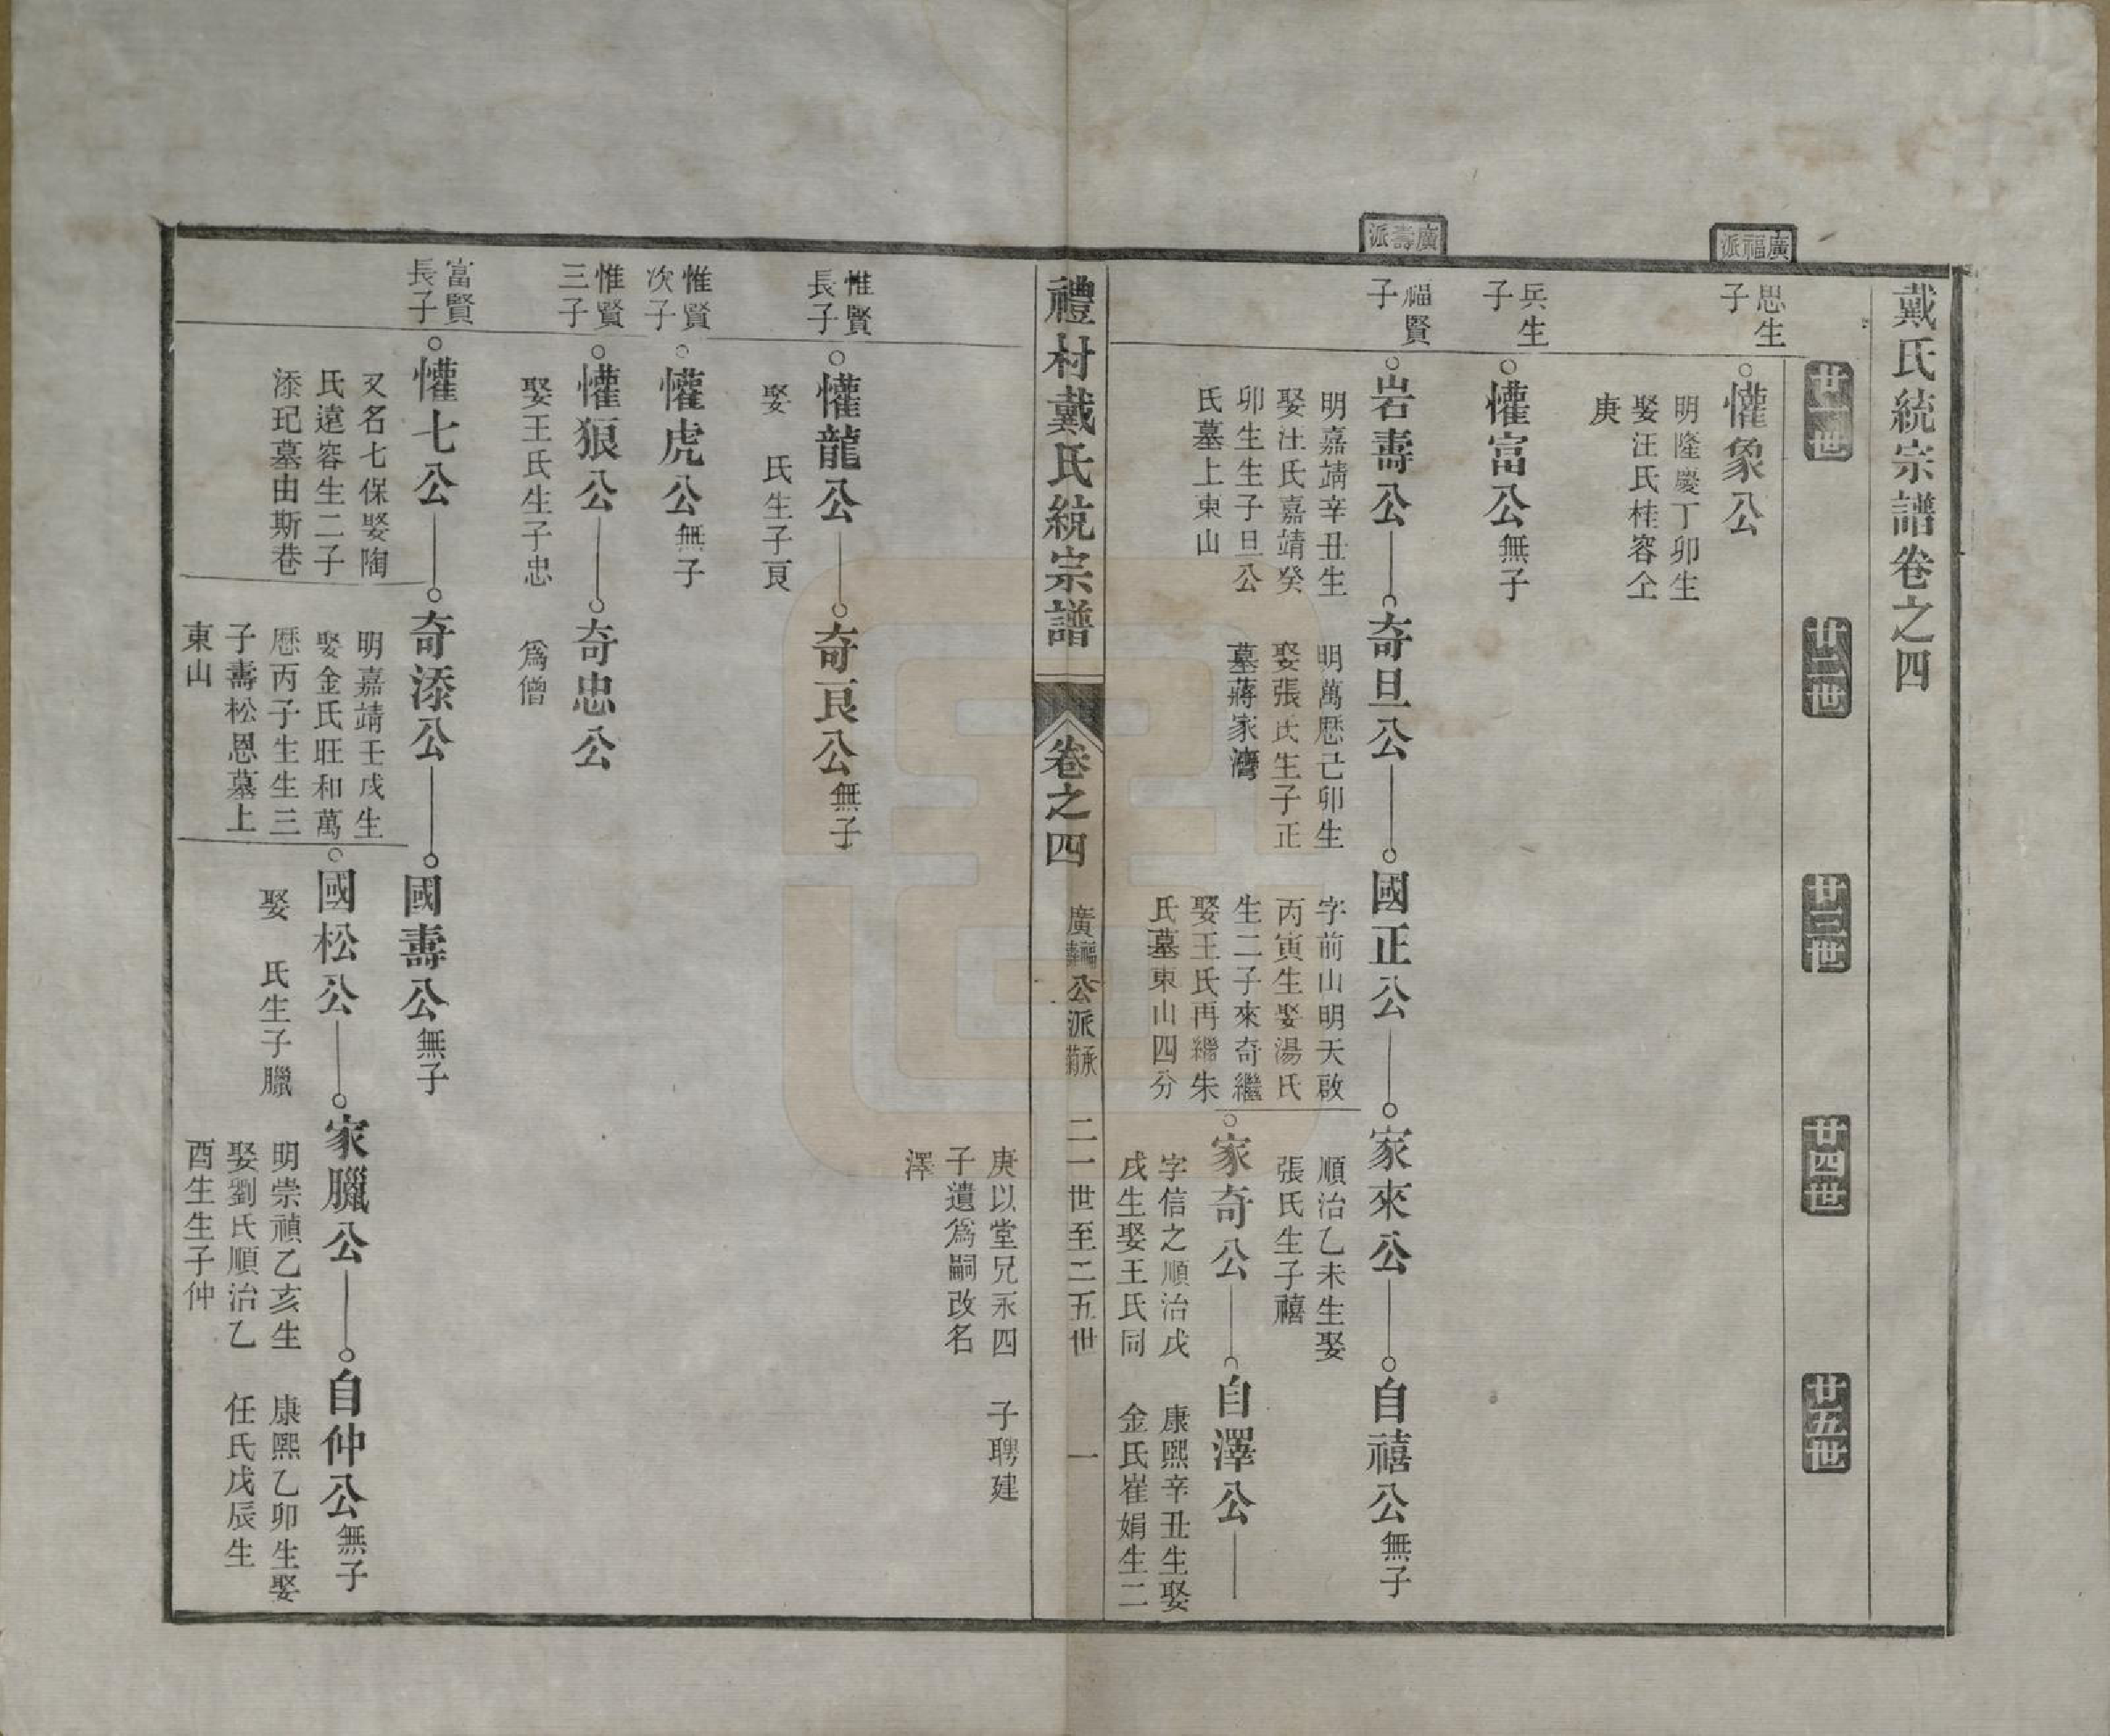 戴氏統宗譜卷之四
廿一世
廿二世
廿三世
廿四世
廿五世
廣福派
思生
子
懽象公
明隆慶丁卯生
娶汪氏桂容仝
庚
兵生
子
懽富公無子
廣壽派
福賢
子
岩壽公
明嘉靖辛丑生
娶汪氏嘉靖癸
卯生生子旦公
氏墓上東山
奇旦公
明萬歷己卯生
娶張氏生子正
墓蔣家灣
國正公
字前山明天啟
丙寅生娶湯氏
生二子來奇繼
娶王氏再繼朱
氏墓東山四分
家來公
順治乙未生娶
張氏生子禧
自禧公無子
家奇公
字信之順治戊
戌生娶王氏同
自澤公
康熙辛丑生娶
金氏崔娟生二
禮村戴氏統宗譜
卷之四
廣福壽公派
二一世至二五世
一
庚以堂兄永四
子遺為嗣改名
澤
子聘建
惟賢
長子
懽龍公
娶 氏生子良
奇良公無子
惟賢
次子
懽虎公無子
惟賢
三子
懽狼公
娶王氏生子忠
奇忠公
為僧
富賢
長子
懽七公
又名七保娶陶
氏遠容生二子
添玘墓由斯巷
奇添公
明嘉靖壬戌生
娶金氏旺和萬
歷丙子生生三
子壽松恩墓上
東山
國壽公無子
國松公
娶 氏生子臘
家臘公
明崇禎乙亥生
娶劉氏順治乙
酉生生子仲
自仲公無子
康熙乙卯生娶
任氏戊辰生